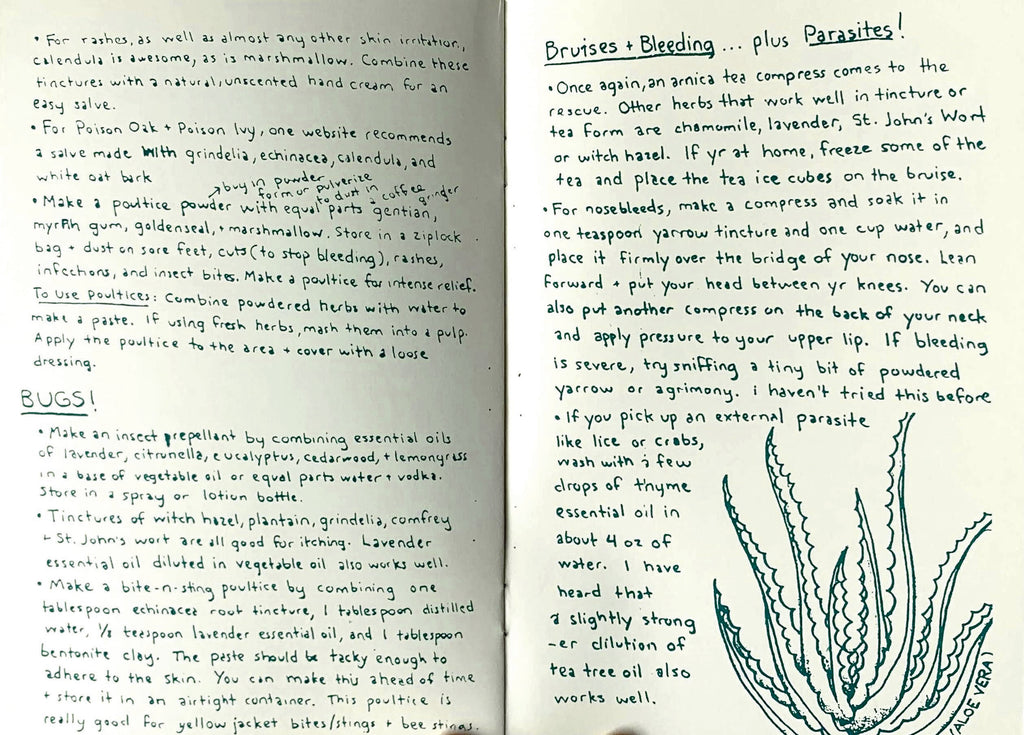 • For rashes, as well as almost any other skin irritation,
calendula is awesome, as is marshmallow. Combine these
tinctures with a natural, unscented hand cream for an
easy salve.
• For Poison Oak + Poison Ivy, one website recommends
a salve made with grindelia, echinacea, calendula, and
white oat bark
→ buy in powder
form or pulverize
to dust in a coffee grinder
• Make a poultice powder with equal parts gentian,
myrrh gum, goldenseal, + marshmallow. Store in a ziplock
bag + dust on sore feet, cuts (to stop bleeding), rashes,
infections, and insect bites. Make a poultice for intense relief.
To Use Poultices: Combine powdered herbs with water to
make a paste. If using fresh herbs, mash them into a pulp.
Apply the poultice to the area + cover with a loose
dressing.
BUGS!
• Make an insect repellant by combining essential oils
of lavender, citrunella, eucalyptus, cedarwood, + lemongrass
in a base of vegetable oil or equal parts water + vodka.
Store in a spray or lotion bottle.
• Tinctures of witch hazel, plantain, grindelia, comfrey
+ St. John's wort are all good for itching. Lavender
essential oil diluted in vegetable oil also works well.
• Make a bite-n-sting poultice by combining one
tablespoon echinacea root tincture, 1 tablespoon distilled
water, 1/8 teaspoon lavender essential oil, and 1 tablespoon
bentonite clay. The paste should be tacky enough to
adhere to the skin. You can make this ahead of time
+ store it in an airtight container. This poultice is
really good for yellow jacket bites/stings + bee stings.
Bruises + Bleeding ... plus Parasites!
• Once again, an arnica tea compress comes to the
rescue. Other herbs that work well in tincture or
tea form are chamomile, lavender, St. John's Wort
or witch hazel. If yr at home, freeze some of the
tea and place the tea ice cubes on the bruise.
• For nosebleeds, make a compress and soak it in
one teaspoon yarrow tincture and one cup water, and
place it firmly over the bridge of your nose. Lean
forward + put your head between yr knees. You can
also put another compress on the back of your neck
and apply pressure to your upper lip. If bleeding
is severe, try sniffing a tiny bit of powdered
yarrow or agrimony. i haven't tried this before
• If you pick up an external parasite
like lice or crabs,
wash with a few
drops of thyme
essential oil in
about 4 oz of
water. I have
heard that
a slightly strong
-er dilution of
tea tree oil also
works well.
(ALOE VERA)